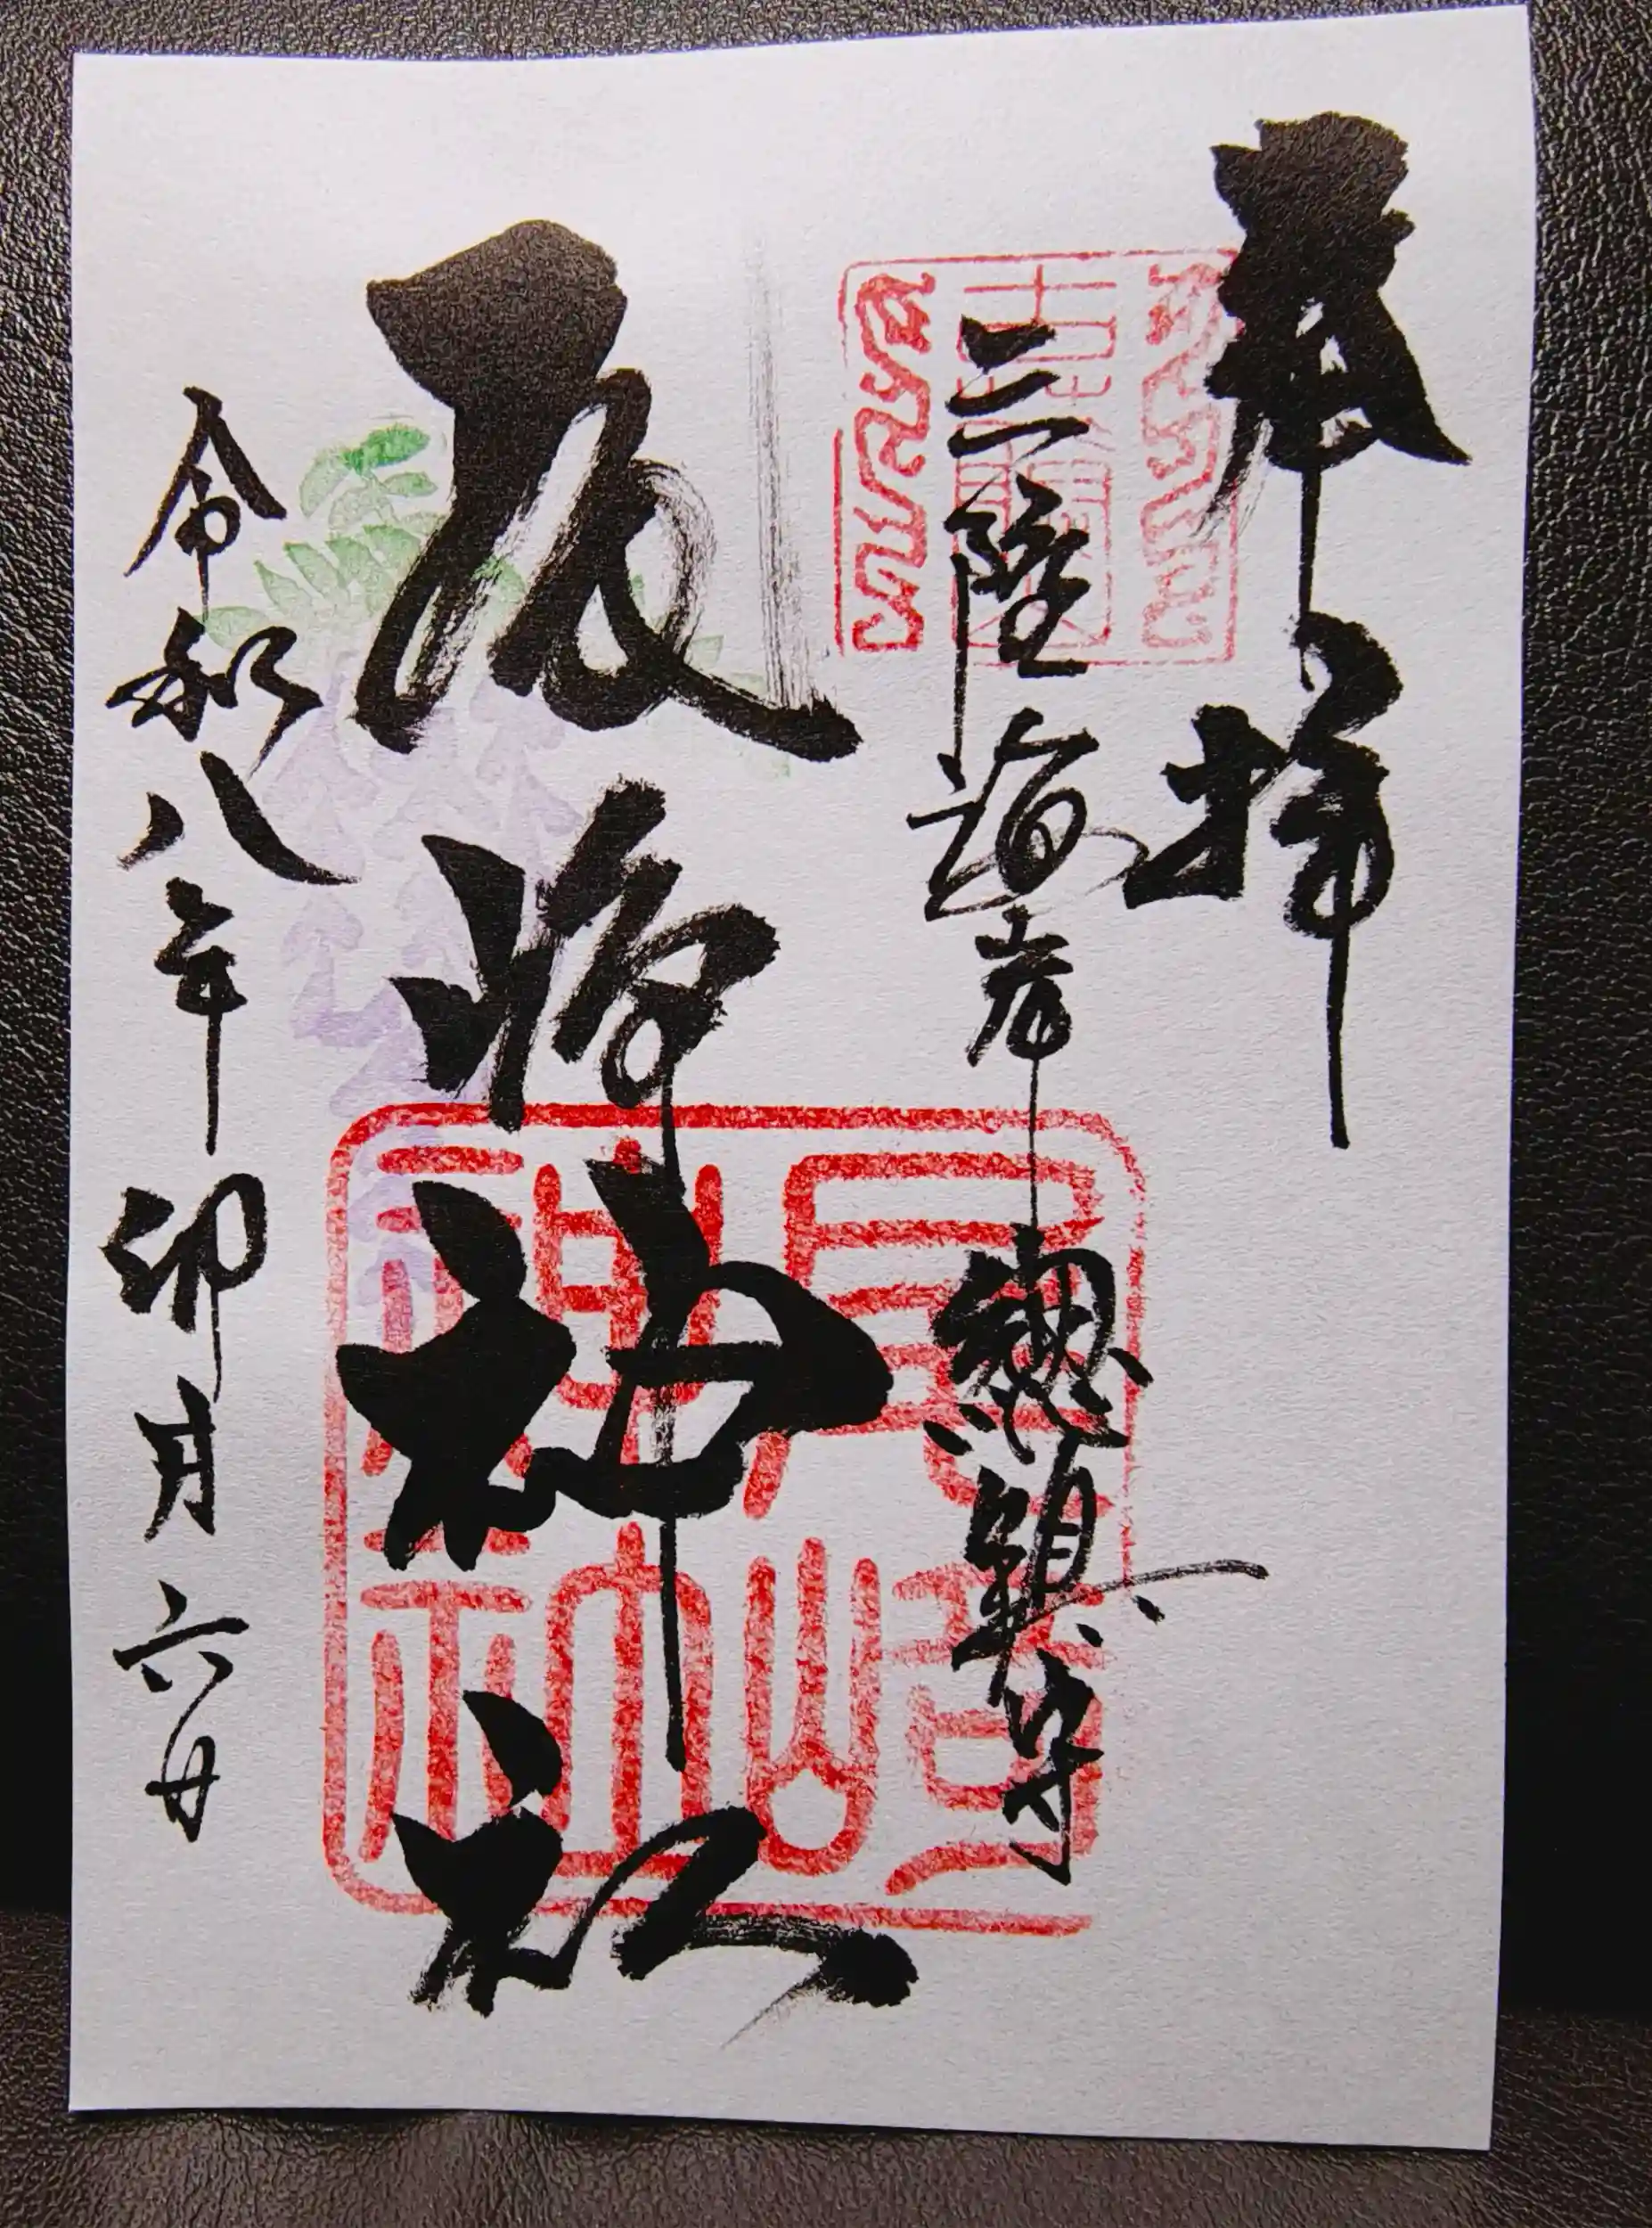 奉拝
三陸海岸 總鎮守
尾崎神社
令和八年卯月六日
尾崎
神社